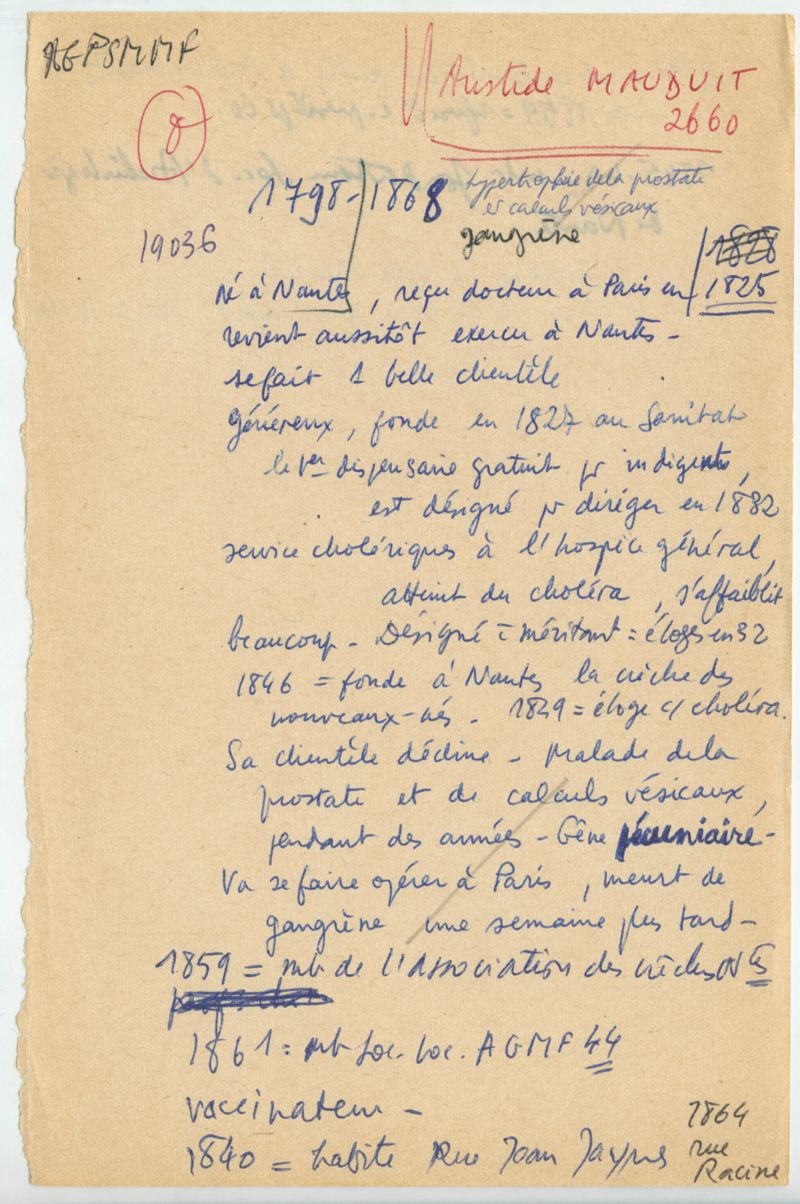 AGFSMMF
Aristide MAUDUIT
2660
1798-1868 hypertrophie de la prostate
et calculs vésicaux
gangrène
19036
1828
né à Nantes, reçu docteur à Paris en 1825
revient aussitôt exercer à Nantes -
se fait 1 belle clientèle
généreux, fonde en 1827 au Sanitat
le 1er dispensaire gratuit pr indigents,
est désigné pr diriger en 1832
service cholériques à l'hospice général,
atteint du choléra, s'affaiblit
beaucoup - Désigné c méritant = éloges en 32
1846 = fonde à Nantes la crèche des
nouveaux-nés - 1849 = éloge c/ choléra.
Sa clientèle décline - Malade de la
prostate et de calculs vésicaux,
pendant des années - Gêne pécuniaire -
Va se faire opérer à Paris, meurt de
gangrène une semaine plus tard -
1859 = mb de l'Association des crèches Ntes
1861 = mb Soc. loc. AGMF 44
vaccinateur -
1840 = habite Rue Jean Jacques
1864
rue
Racine